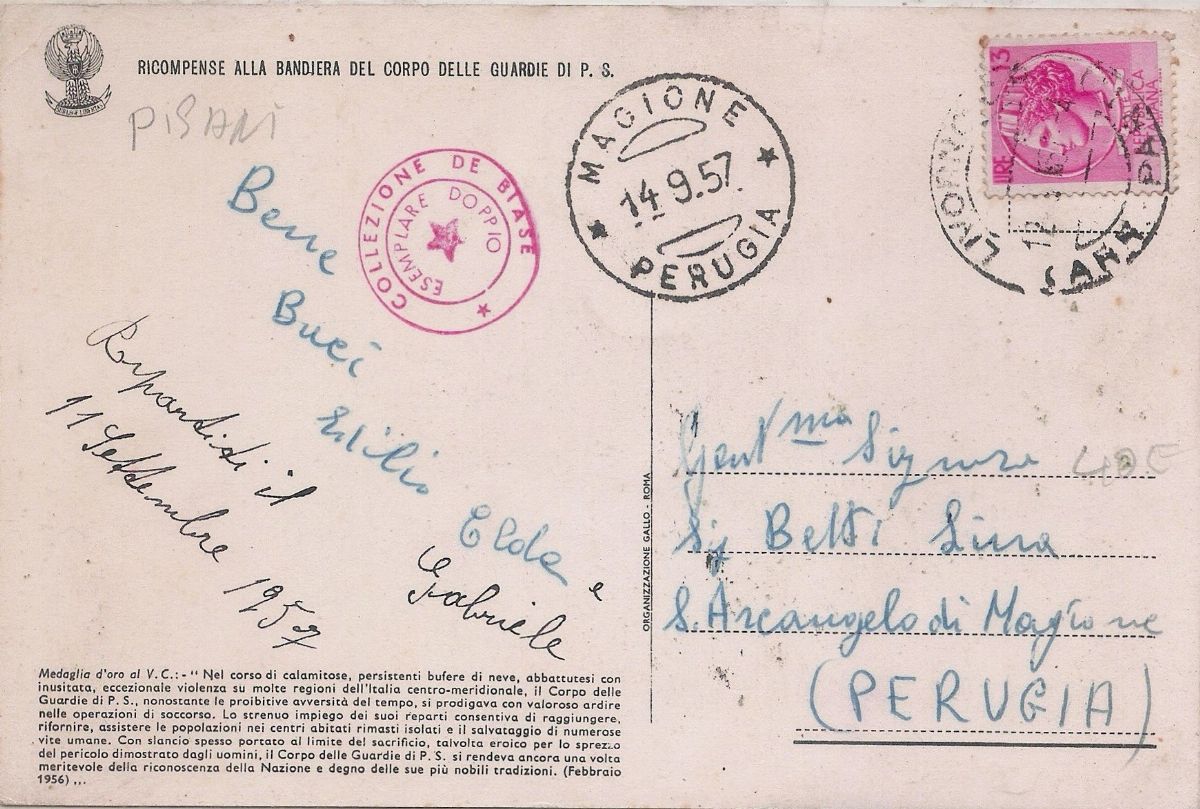 RICOMPENSE ALLA BANDIERA DEL CORPO DELLE GUARDIE DI P. S.
PISANI
COLLEZIONE DE BIASE
ESEMPLARE DOPPIO
MAGIONE
14.9.57.
PERUGIA
LIVORNO
LIRE 13
Bene
Baci
Elda e
Gabriele
Rispondidi il
11 Settembre 1957
Gent ma Signora
Sig Betti Lina
S. Arcangelo di Magione
(PERUGIA)
ORGANIZZAZIONE GALLO - ROMA
Medaglia d'oro al V. C.: - " Nel corso di calamitose, persistenti bufere di neve, abbattutesi con
inusitata, eccezionale violenza su molte regioni dell'Italia centro-meridionale, il Corpo delle
Guardie di P. S., nonostante le proibitive avversità del tempo, si prodigava con valoroso ardire
nelle operazioni di soccorso. Lo strenuo impiego dei suoi reparti consentiva di raggiungere,
rifornire, assistere le popolazioni nei centri abitati rimasti isolati e il salvataggio di numerose
vite umane. Con slancio spesso portato al limite del sacrificio, talvolta eroico per lo sprezzo
del pericolo dimostrato dagli uomini, il Corpo delle Guardie di P. S. si rendeva ancora una volta
meritevole della riconoscenza della Nazione e degno delle sue più nobili tradizioni. (Febbraio
1956) ...